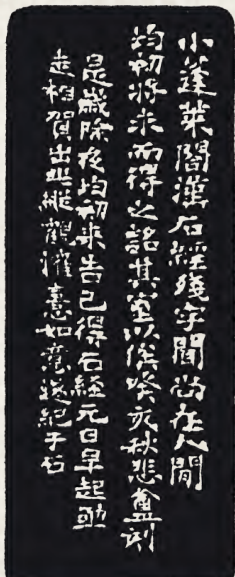 小蓬萊閣漢石經殘字聞尚在人間
均初將求而得之詺其室以俟癸亥秋悲盦刻
是歲除夜均初來告已得石經元日早起郵
走相賀出此縱觀懽憙如意遂紀于石